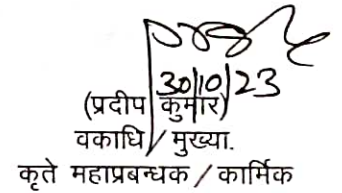 30/10/23
(प्रदीप कुमार)
वकाधि / मुख्या.
कृते महाप्रबन्धक / कार्मिक